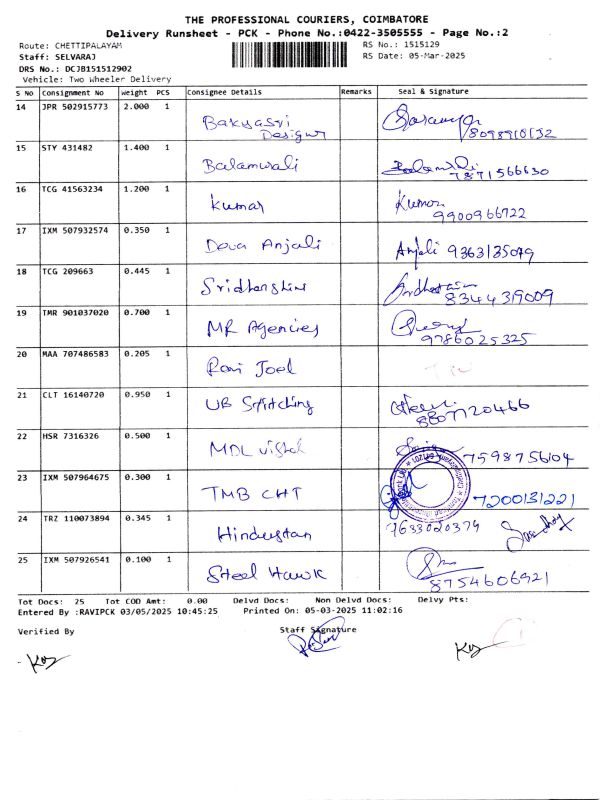 THE PROFESSIONAL COURIERS, COIMBATORE
Delivery Runsheet - PCK - Phone No.:0422-3505555 - Page No.:2
Route: CHETTIPALAYAM RS No.: 1515129
Staff: SELVARAJ RS Date: 05-Mar-2025
DRS No.: DCJB151512902
Vehicle: Two Wheeler Delivery
S NO Consignment No Weight PCS Consignee Details Remarks Seal & Signature
14 JPR 502915773 2.000 1 Bakyasri
Designer 8098910532
15 STY 431482 1.400 1 Balamurali
7871566630
16 TCG 41563234 1.200 1 Kumar Kumar
9900966722
17 IXM 507932574 0.350 1 Deva Anjali Anjali 9363135049
18 TCG 209663 0.445 1
8344439009
19 TMR 901037020 0.700 1 MR Agencies
9786025325
20 MAA 707486583 0.205 1 Ravi Joel
21 CLT 16140720 0.950 1 UB Stitching
8807720466
22 HSR 7316326 0.500 1 MDL
7598756104
23 IXM 507964675 0.300 1 TMB CHT
7200131221
24 TRZ 110073894 0.345 1 Hindustan
9633020379
25 IXM 507926541 0.100 1 Steel Hawk
8754606921
Tot Docs: 25 Tot COD Amt: 0.00 Delvd Docs: Non Delvd Docs: Delvy Pts:
Entered By :RAVIPCK 03/05/2025 10:45:25 Printed On: 05-03-2025 11:02:16
Verified By Staff Signature